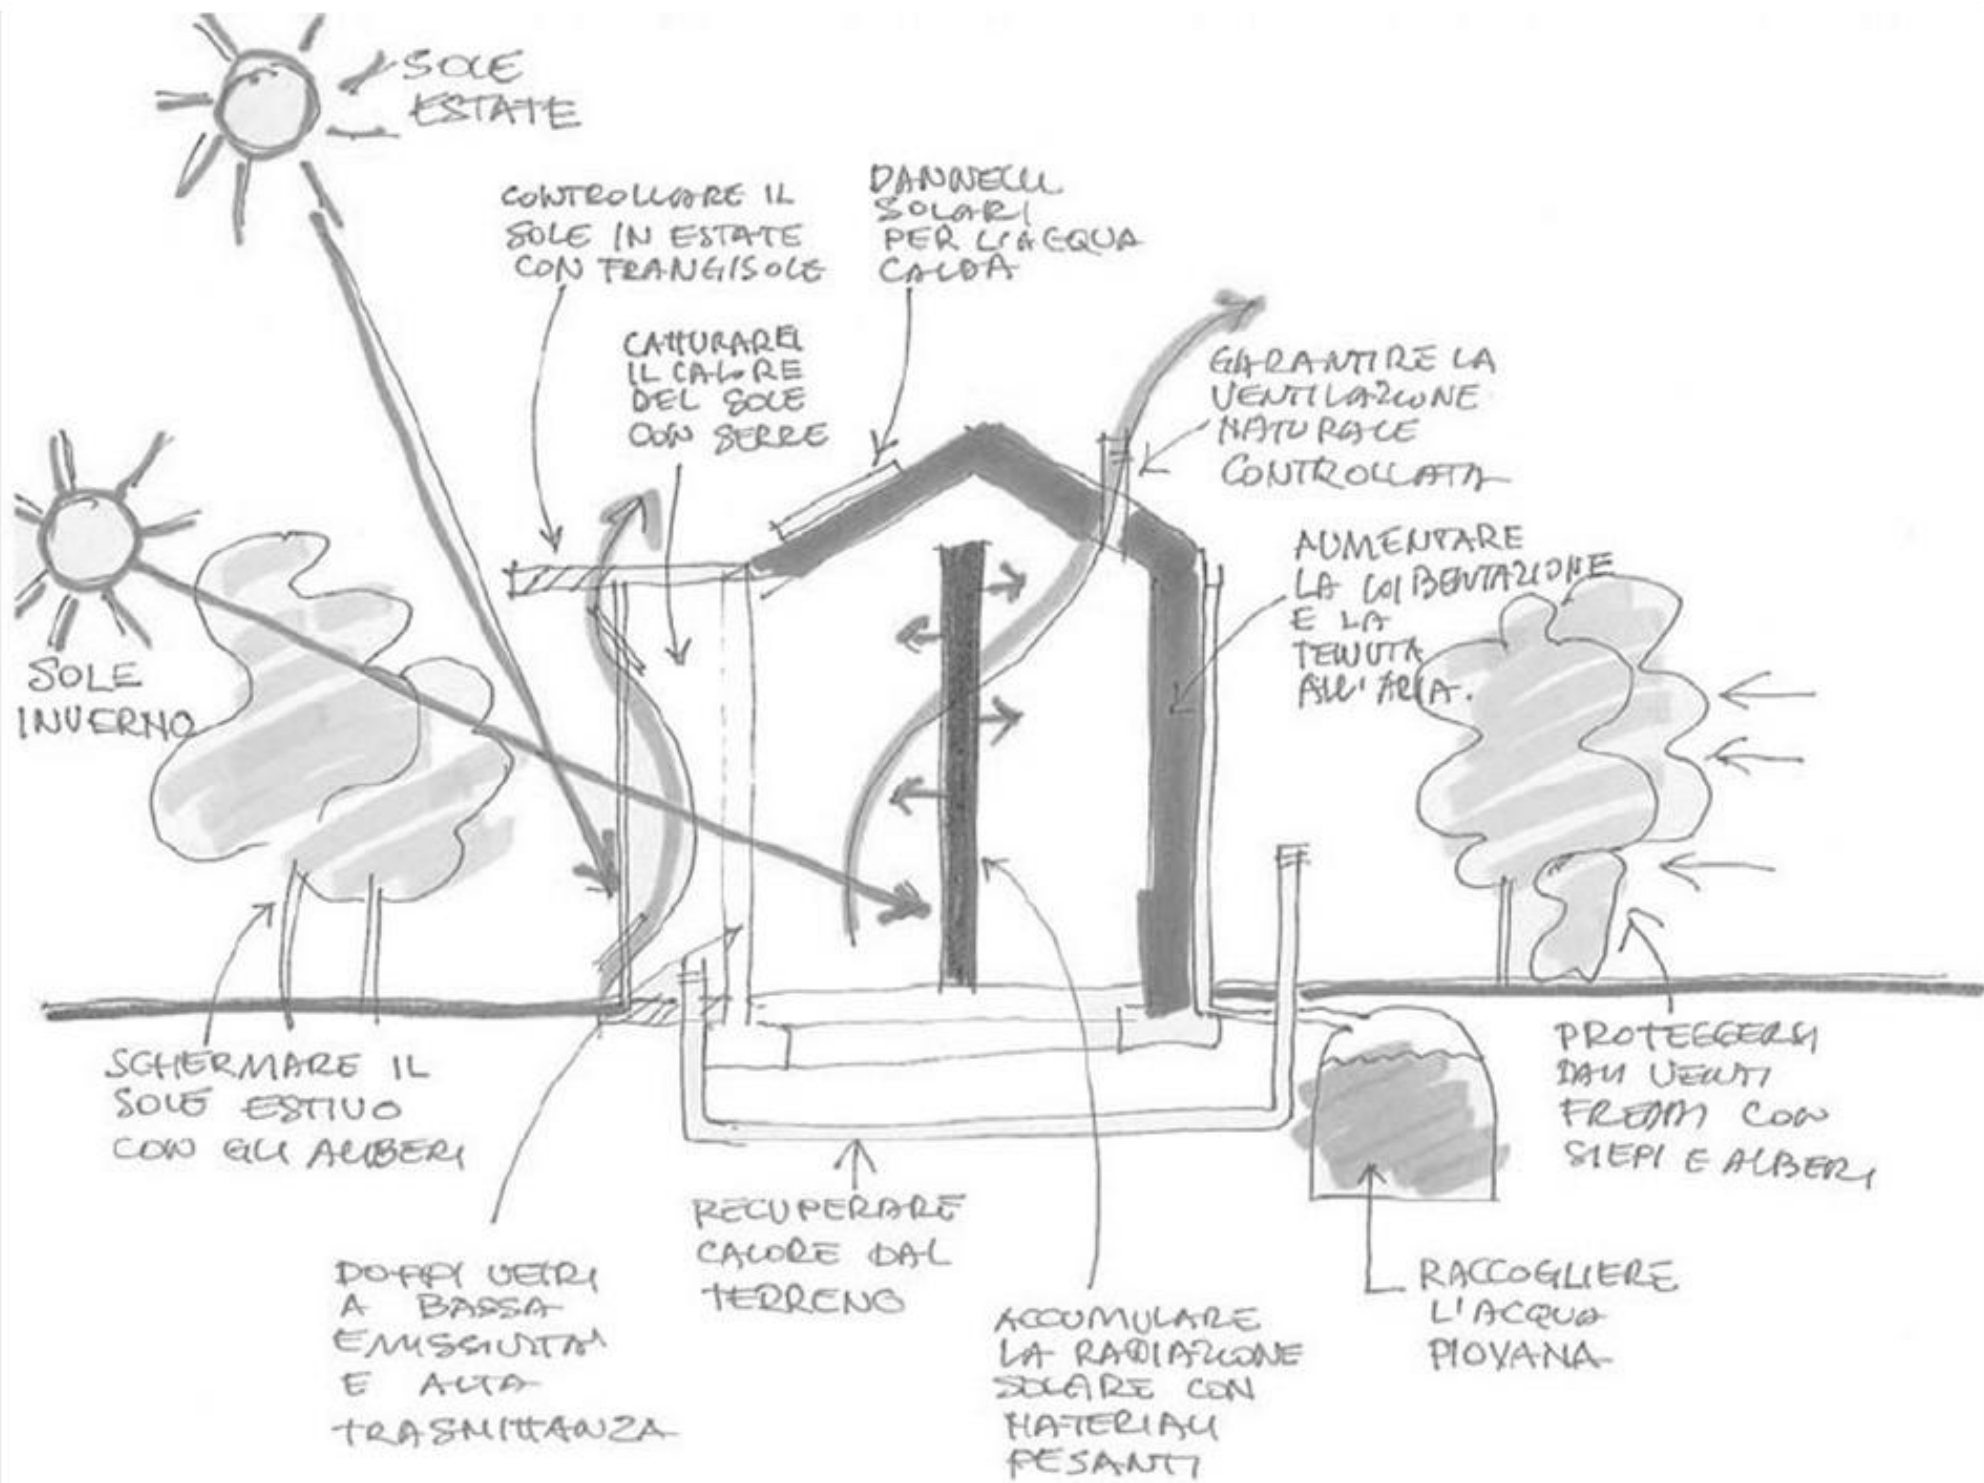 SOLE
ESTATE
CONTROLLARE IL
SOLE IN ESTATE
CON FRANGISOLE
PANNELLI
SOLARI
PER L'ACQUA
CALDA
CATTURARE
IL CALORE
DEL SOLE
CON SERRE
GARANTIRE LA
VENTILAZIONE
NATURALE
CONTROLLATA
AUMENTARE
LA COIBENTAZIONE
E LA
TENUTA
ALL'ARIA.
SOLE
INVERNO
SCHERMARE IL
SOLE ESTIVO
CON GLI ALBERI
PROTEGGERSI
DAI VENTI
FREDDI CON
SIEPI E ALBERI
DOPPI VETRI
A BASSA
EMISSIVITA'
E ALTA
TRASMITTANZA
RECUPERARE
CALORE DAL
TERRENO
ACCUMULARE
LA RADIAZIONE
SOLARE CON
MATERIALI
PESANTI
RACCOGLIERE
L'ACQUA
PIOVANA